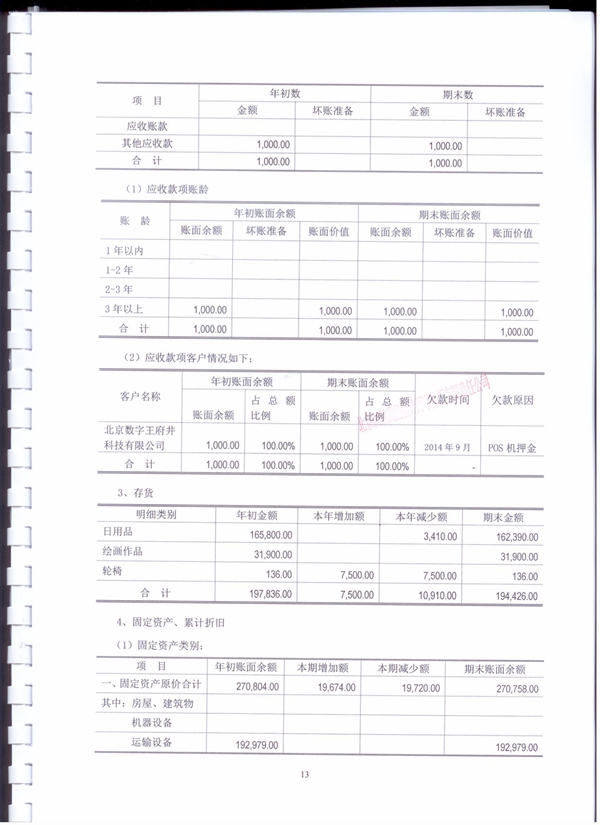 项 目 年初数 期末数
金额 坏账准备 金额 坏账准备
应收账款
其他应收款 1,000.00 1,000.00
合 计 1,000.00 1,000.00
（1）应收款项账龄
账 龄 年初账面余额 期末账面余额
账面余额 坏账准备 账面价值 账面余额 坏账准备 账面价值
1 年以内
1-2 年
2-3 年
3 年以上 1,000.00 1,000.00 1,000.00 1,000.00
合 计 1,000.00 1,000.00 1,000.00 1,000.00
（2）应收款项客户情况如下：
客户名称 年初账面余额 期末账面余额 欠款时间 欠款原因
账面余额 占总额比例 账面余额 占总额比例
北京数字王府井
科技有限公司 1,000.00 100.00% 1,000.00 100.00% 2014 年 9 月 POS 机押金
合 计 1,000.00 100.00% 1,000.00 100.00% -
3、存货
明细类别 年初金额 本年增加额 本年减少额 期末金额
日用品 165,800.00 3,410.00 162,390.00
绘画作品 31,900.00 31,900.00
轮椅 136.00 7,500.00 7,500.00 136.00
合 计 197,836.00 7,500.00 10,910.00 194,426.00
4、固定资产、累计折旧
（1）固定资产类别：
项 目 年初账面余额 本期增加额 本期减少额 期末账面余额
一、固定资产原价合计 270,804.00 19,674.00 19,720.00 270,758.00
其中：房屋、建筑物
机器设备
运输设备 192,979.00 192,979.00
13